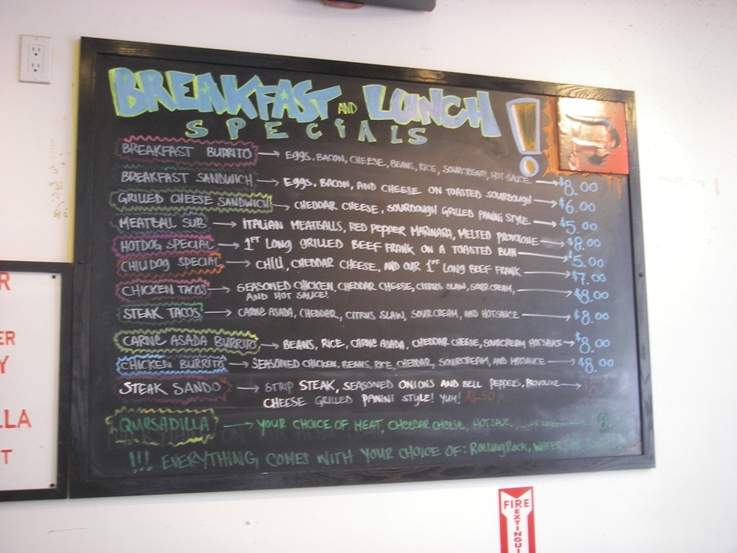 BREAKFAST AND LUNCH !
SPECIALS
BREAKFAST BURRITO → EGGS, BACON, CHEESE, BEANS, RICE, SOURCREAM, HOT SAUCE → $8.00
BREAKFAST SANDWICH → EGGS, BACON, AND CHEESE ON TOASTED SOURDOUGH → $6.00
GRILLED CHEESE SANDWICH → CHEDDAR CHEESE, SOURDOUGH GRILLED PANINI STYLE → $5.00
MEATBALL SUB → ITALIAN MEATBALLS, RED PEPPER MARINARA, MELTED PROVOLONE → $8.00
HOTDOG SPECIAL → 1FT LONG GRILLED BEEF FRANK ON A TOASTED BUN → $5.00
CHILI DOG SPECIAL → CHILI, CHEDDAR CHEESE, AND OUR 1FT LONG BEEF FRANK → $7.00
CHICKEN TACOS → SEASONED CHICKEN, CHEDDAR CHEESE, CITRUS SLAW, SOUR CREAM, → $8.00
AND HOT SAUCE!
STEAK TACOS → CARNE ASADA, CHEDDAR, CITRUS SLAW, SOUR CREAM, AND HOTSAUCE → $8.00
CARNE ASADA BURRITO → BEANS, RICE, CARNE ASADA, CHEDDAR CHEESE, SOURCREAM, HOTSAUCE → $8.00
CHICKEN BURRITO → SEASONED CHICKEN, BEANS, RICE, CHEDDAR, SOURCREAM, AND HOTSAUCE → $8.00
STEAK SANDO → STRIP STEAK, SEASONED ONIONS AND BELL PEPPERS, PROVOLONE →
CHEESE GRILLED PANINI STYLE! YUM!
QUESADILLA → YOUR CHOICE OF MEAT, CHEDDAR CHEESE, HOT SAUCE,
!!! EVERYTHING COMES WITH YOUR CHOICE OF: ROLLING ROCK, WATER
R
ER
Y
LLA
T
FIRE
EXTINGUI